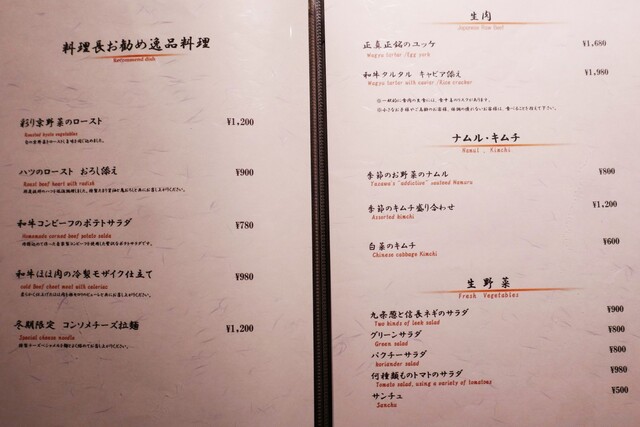 料理長お勧め逸品料理
Recommended dish
彩り京野菜のロースト
Roasted kyoto vegetables
¥1,200
ハツのロースト おろし添え
Roast beef heart with radish
¥900
和牛コンビーフのポテトサラダ
Homemade corned beef potato salda
¥780
和牛ほほ肉の冷製モザイク仕立て
cold Beef cheet meat with celeriac
¥980
冬期限定 コンソメチーズ拉麺
Special cheese noodle
¥1,200
生肉
Japanese Raw Beef
正真正銘のユッケ
Wagyu tarter /Egg york
¥1,680
和牛タルタル キャビア添え
Wagyu tarter with caviar /Rice cracker
¥1,980
※一般的に食肉の生食には、食中毒のリスクがあります。
※小さなお子様やご高齢のお客様、体調の優れないお客様は、食べることを控えて下さい。
ナムル・キムチ
Namul , Kimchi
季節のお野菜のナムル
Yazawa's "addictive" seafood Namuru
¥800
季節のキムチ盛り合わせ
Assorted kimchi
¥1,200
白菜のキムチ
Chinese cabbage Kimchi
¥600
生野菜
Fresh Vegetables
九条葱と信長ネギのサラダ
Two kinds of leek salad
¥900
グリーンサラダ
Green salad
¥800
パクチーサラダ
koriander salad
¥800
何種類ものトマトのサラダ
Tomato salad, using a variety of tomatoes
¥980
サンチュ
Sanchu
¥500